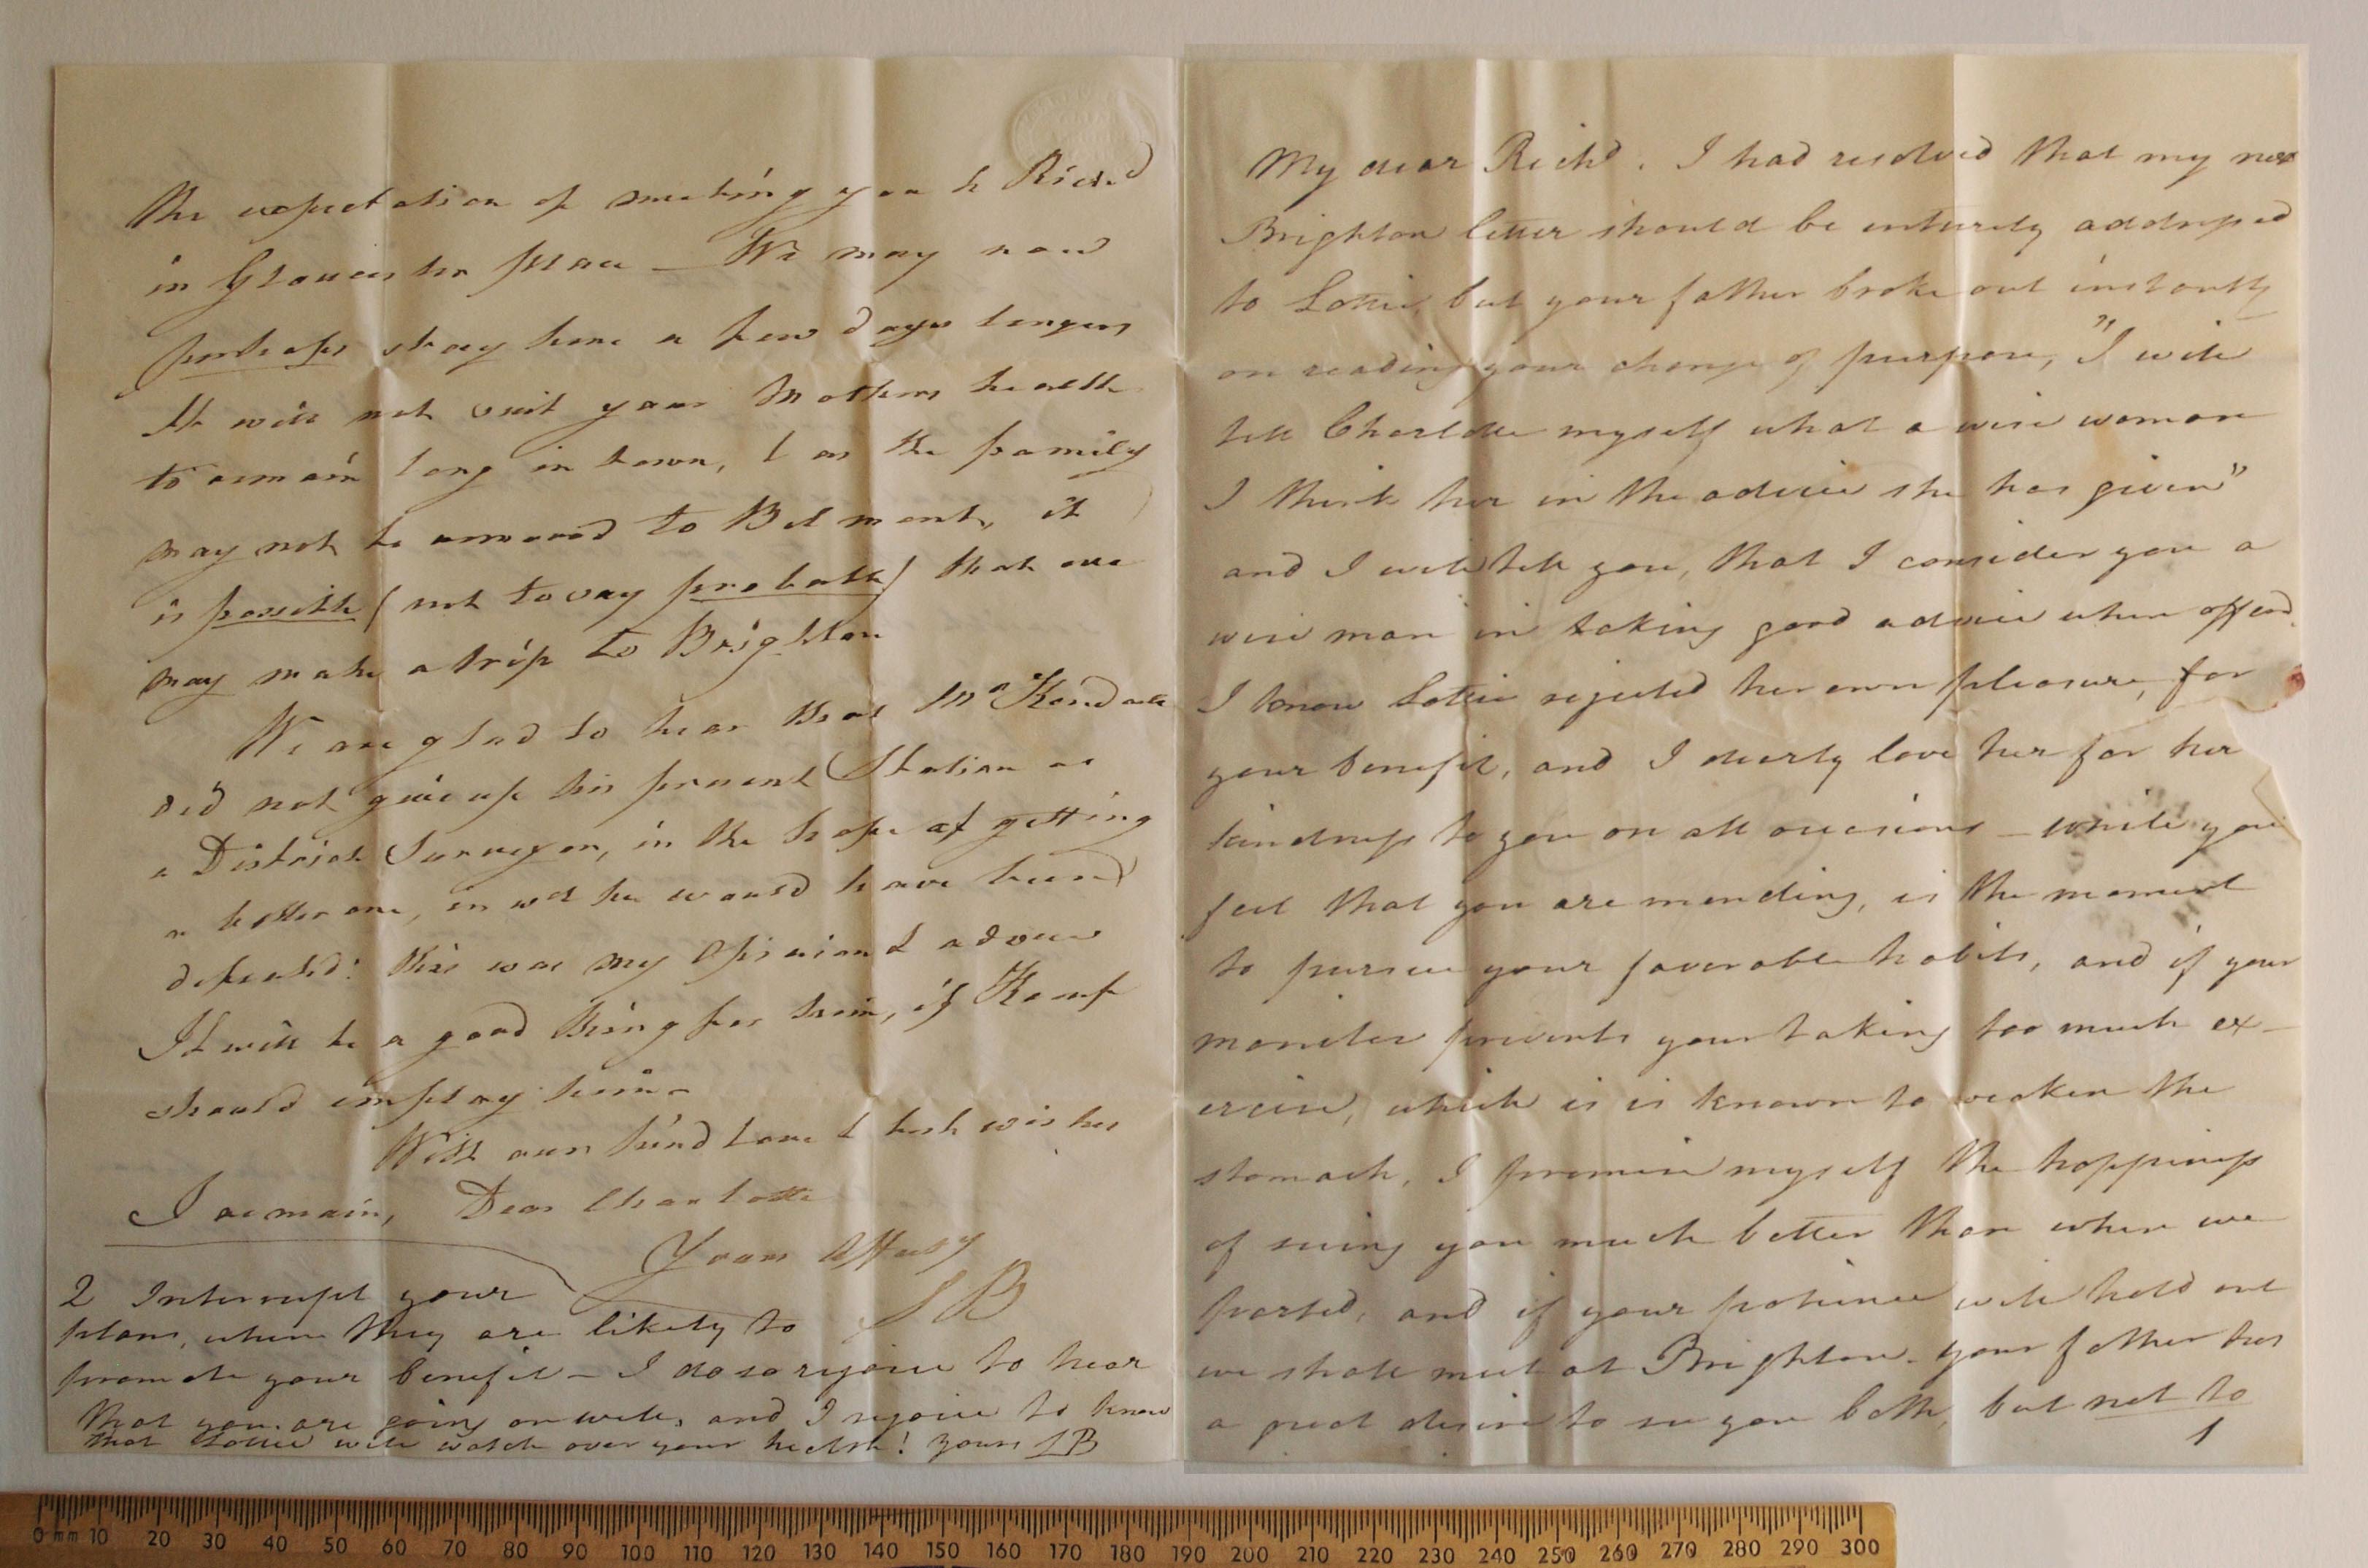 the expectation of meeting you & Richd
in Gloucester place — We may now
perhaps stay here a few days longer,
It will not suit your Mothers health
to remain long in town, & as the family
may not be removed to Belmont, it
is possible (not to say probable) that we
may make a trip to Brighton
We are glad to hear that Mr Kendall
did not give up his present Station as
a District Surveyor, in the hope of getting
a better one, in wch he would have been
defeated: this was my Opinion & advice
It will be a good thing for him, if Kemp
should employ him —
With our kind love & best wishes
I remain, Dear Charlotte
Yours Affecly
SB
2 Interrupt your
plans, when they are likely to
promote your benefit — I do so rejoice to hear
that you are going on well, and I rejoice to know
that Lottie will watch over your health! Yours LB
My dear Richd. I had resolved that my next
Brighton letter should be entirely addressed
to Lottie, but your father broke out instantly
on reading your change of purpose, "I will
tell Charlotte myself what a wise woman
I think her in the advice she has given"
and I will tell you, that I consider you a
wise man in taking good advice when offerd.
I know Lottie rejected her own pleasure, for
your benefit, and I dearly love her for her
kindness to you on all occasions — while you
feel that you are mending, is the moment
to pursue your favorable habits, and if your
monitor prevents your taking too much ex-
ercise, which is is known to weaken the
stomach, I promise myself the happiness
of seeing you much better than when we
parted, and if your patience will hold out
we shall meet at Brighton. your father has
a great desire to see you both, but not to
1
0 mm 10 20 30 40 50 60 70 80 90 100 110 120 130 140 150 160 170 180 190 200 210 220 230 240 250 260 270 280 290 300